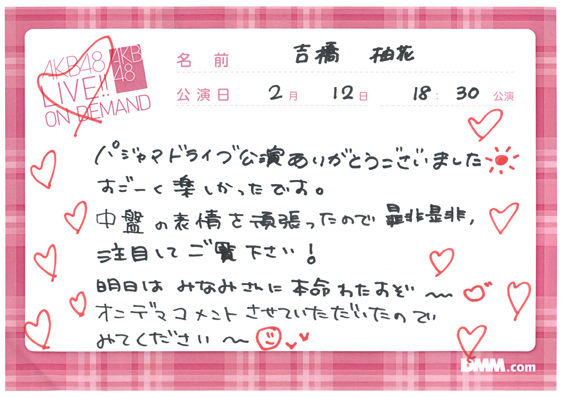 AKB48
LIVE!!
ON DEMAND
AKB
48
名前 吉橋 柚花
公演日 2月 12日 18:30 公演
パジャマドライブ公演ありがとうございました
すごーく楽しかったです。
中盤の表情を頑張ったので是非是非,
注目してご覧下さい!
明日はみなみさんに本命わたすぞ〜
オンデマコメントさせていただいたので
みてください〜
DMM.com